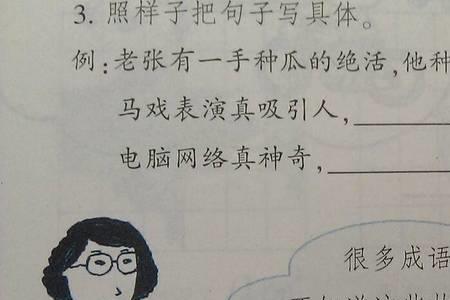 3. 照样子把句子写具体。
例:老张有一手种瓜的绝活,他种
马戏表演真吸引人,
电脑网络真神奇,
很多成语